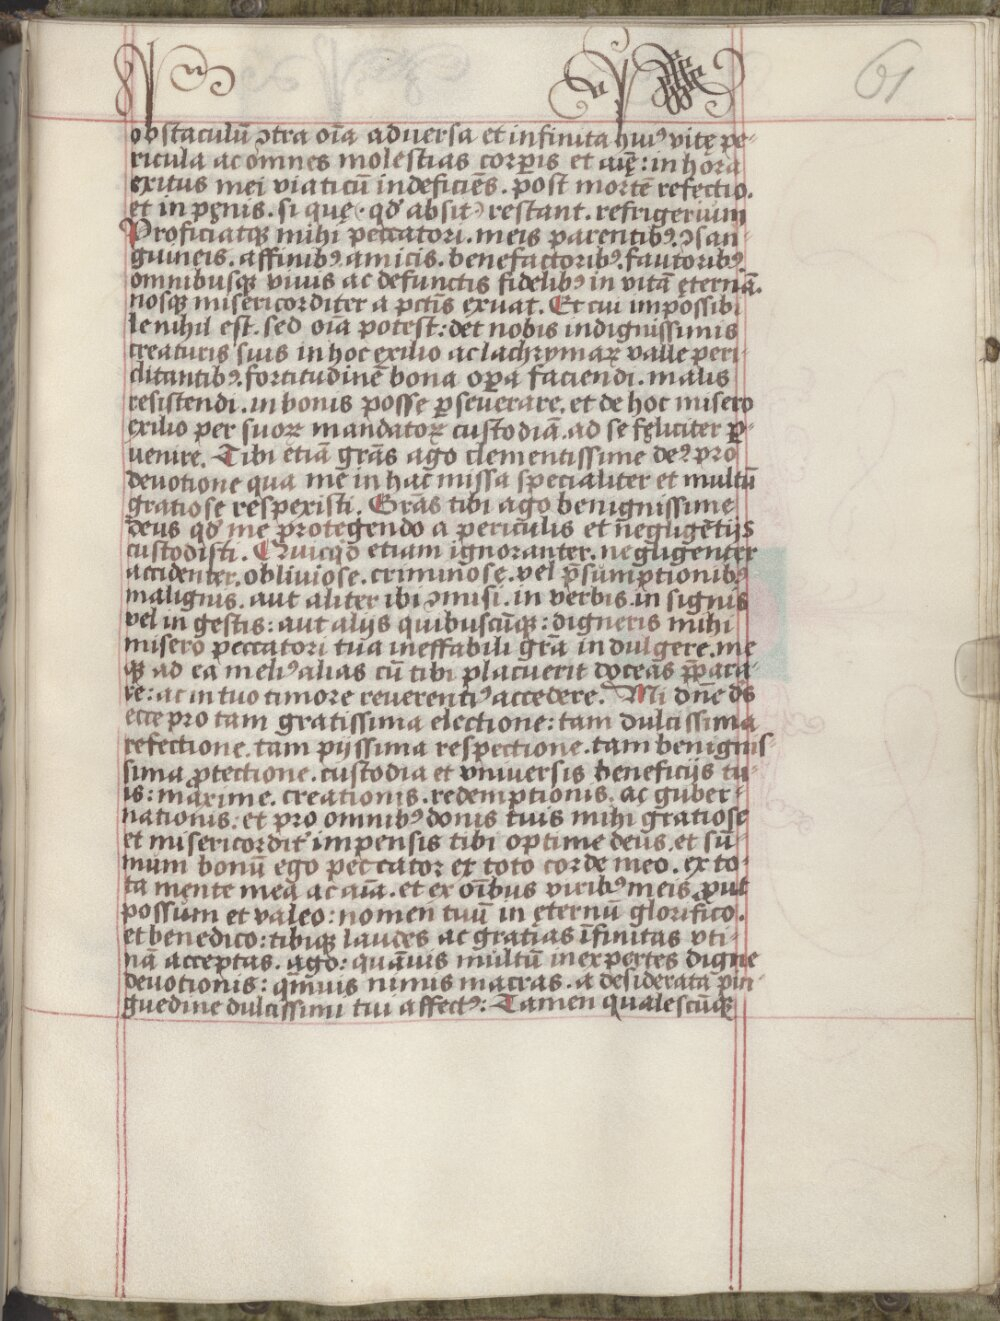 61
obstaculū ↄtra oīa aduersa et infinita huiꝰ vitę pe-
ricula ac omnes molestias corꝑis et aīę: in hora
exitus mei viaticū indeficiēs. post mortē refectio.
et in pęnis. si quę (qđ absit) restant. refrigerium
Proficiatqꝫ mihi peccatori. meis parentibꝰ. ↄsan-
guineis. affinibꝰ. amicis. benefactoribꝰ. fautoribꝰ.
omnibusqꝫ viuis ac defunctis fidelibꝰ in vitā eternā.
nosqꝫ misericorditer a pctīs exuat. Et cui impossibi
le nihil est. sed oīa potest: det nobis indignissimis
creaturis suis in hoc exilio ac lachrymaꝝ valle peri-
clitantibꝰ. fortitudinē bona oꝑa faciendi. malis
resistendi. in bonis posse ꝑseuerare. et de hoc misero
exilio per suoꝝ mandatoꝝ custodiā. ad se fęliciter ꝑ-
uenire. Tibi etiā grās ago clementissime deꝰ pro
deuotione qua me in hac missa specialiter et multū
gratiose respexisti. Grās tibi ago benignissime
deus qđ me protegendo a periculis et negligētijs
custodisti. Quicqđ etiam ignoranter. negligenter
accidenter. obliuiose. criminose. vel p̄sumptionibꝰ
malignis. aut aliter ibi ↄmisi. in verbis. in signis
vel in gestis: aut alijs quibuscūqꝫ: digneris mihi
misero peccatori tua ineffabili grā indulgere. me
qꝫ ad ea meliꝰ alias cū tibi placuerit doceās p̄para-
re: ac in tuo timore reuerentiꝰ accedere. Mi dn̄e ds̄
ecce pro tam gratissima electione: tam dulcissima
refectione. tam pijssima respectione. tam benignis-
sima ꝓtectione. custodia et vniuersis beneficijs tu-
is: maxime. creationis. redemptionis. ac guber-
nationis: et pro omnibꝰ donis tuis mihi gratiose
et misericordit͛ impensis tibi optime deus. et sū-
mum bonū ego peccator ex toto corde meo. ex to-
ta mente mea ac aīa. et ex oībus viribꝰ meis ꝓut
possum et valeo: nomen tuū in eternū glorifico.
et benedico: tibiqꝫ laudes ac gratias īfinitas vti-
nā acceptas. ago: quāuis multū inexpertes digne
deuotionis: qūuis nimis macras. a desiderata pin-
guedine dulcissimi tui affectꝰ: Tamen qualescūqꝫ